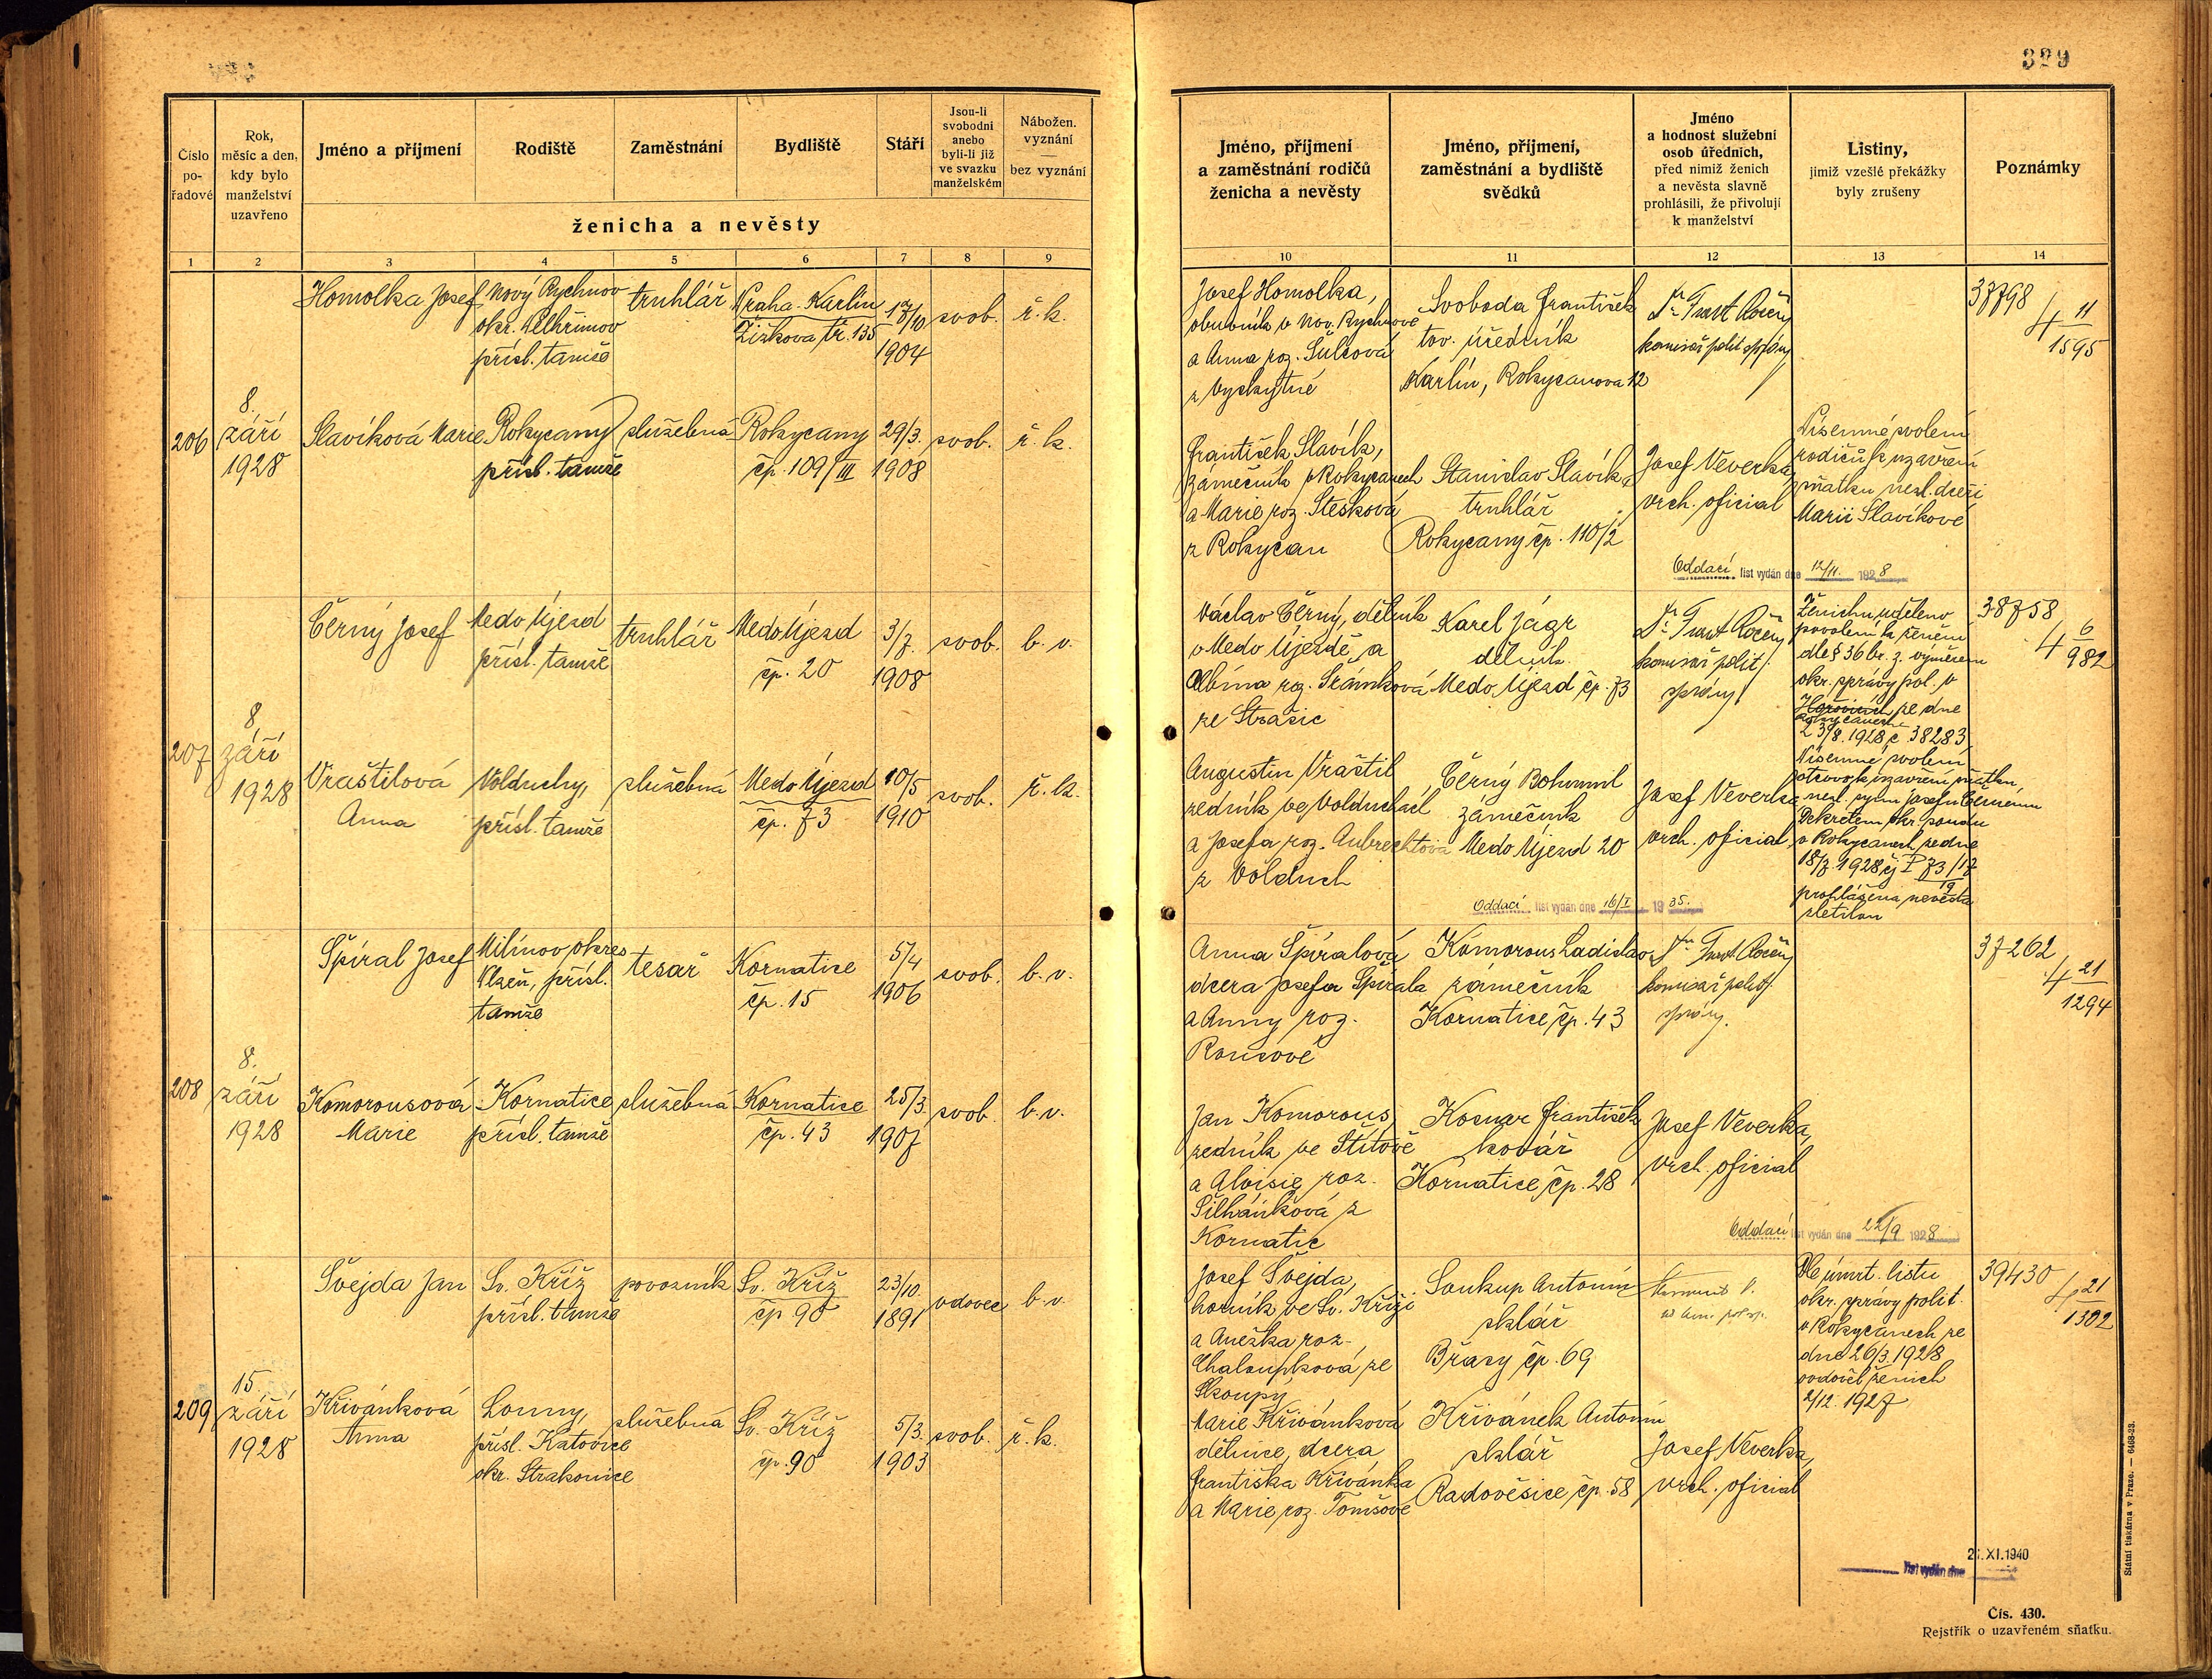 329
Číslo pořadové
Rok, měsíc a den, kdy bylo manželství uzavřeno
Jméno a příjmení
Rodiště
Zaměstnání
Bydliště
Stáří
Jsou-li svobodni anebo byli-li již ve svazku manželském
Nábožen. vyznání
—
bez vyznání
ženicha a nevěsty
Jméno, příjmení a zaměstnání rodičů ženicha a nevěsty
Jméno, příjmení, zaměstnání a bydliště svědků
Jméno a hodnost služební osob úředních, před nimiž ženich a nevěsta slavně prohlásili, že přivolují k manželství
Listiny, jimiž vzešlé překážky byly zrušeny
Poznámky
1 2 3 4 5 6 7 8 9 10 11 12 13 14
206
8.
září
1928
Homolka Josef
Nový Rychnov
okr. Pelhřimov
přísl. tamže
truhlář
Praha-Karlín
Žižkova tř. 135
17/10
1904
svob.
ř. k.
Josef Homolka,
obuvník v Nov. Rychnově
a Anna roz. Šulcová
z Vyskytné
Svoboda František
tov. úředník
Karlín, Rokycanova 12
komisař polit. správy
37798
4 11/1595
Slavíková Marie
Rokycany
přísl. tamže
služebná
Rokycany
čp. 109/III
29/3.
1908
svob.
ř. k.
František Slavík,
zámečník v Rokycanech
a Marie roz. Stesková
z Rokycan
Stanislav Slavík
truhlář
Rokycany čp. 110/2
Josef Veverka,
vrch. oficial
Písemné svolení
rodičů k uzavření
sňatku nezl. dceři
Marii Slavíkové
Oddací list vydán dne 12/11. 1928
207
8
září
1928
Černý Josef
Medo Újezd
přísl. tamže
truhlář
Medo Újezd
čp. 20
3/7.
1908
svob.
b. v.
Václav Černý, dělník
v Medo Újezdě a
Albína roz. Šrámková
ze Strašic
Karel Jágr
dělník
Medo Újezd čp. 73
komisař polit.
správy
Ženichu uděleno
povolení k ženění
dle § 36 br. z. výměrem
okr. správy pol. v
Hořovicích ze dne
Rokycanech
23/8. 1928 č. 38283,
Písemné svolení
otcovo k uzavření sňatku
nezl. synu Josefu Černému
38758
4 6/982
Vraštilová
Anna
Volduchy,
přísl. tamže
služebná
Medo Újezd
čp. 73
10/5
1910
svob.
ř. k.
Augustin Vraštil
zedník ve Volduchách
a Josefa roz. Aubrechtová
z Volduch
Černý Bohumil
zámečník
Medo Újezd 20
Josef Veverka
vrch. oficial
Dekretem okr. soudu
v Rokycanech ze dne
18/7. 1928 čj P 73/17
prohlášena nevěsta
zletilou
Oddací list vydán dne 16/I 1935.
208
8.
září
1928
Špíral Josef
Milínov okres
Plzeň, přísl.
tamže
tesař
Kornatice
čp. 15
5/4
1906
svob.
b. v.
Anna Špíralová
dcera Josefa Špírala
a Anny roz.
Rousové
Komorous Ladislav
zámečník
Kornatice čp. 43
komisař polit.
správy.
37262
4 21/1294
Komorousová
Marie
Kornatice
přísl. tamže
služebná
Kornatice
čp. 43
25/3.
1907
svob.
b. v.
Jan Komorous,
zedník ve Štítově
a Aloisie roz.
Šilhánková z
Kornatic
Kosnar František
kovář
Kornatice čp. 28
Josef Veverka,
vrch. oficial
Oddací list vydán dne 22/9 1928
209
15.
září
1928
Švejda Jan
Sv. Kříž
přísl. tamže
povozník
Sv. Kříž
čp 90
23/10.
1891
vdovec
b. v.
Josef Švejda,
horník ve Sv. Kříži
a Anežka roz.
Chaloupková, ze
Skoupý
Soukup Antonín
sklář
Břasy čp. 69
Dle úmrt. listu
okr. správy polit.
v Rokycanech ze
dne 26/3. 1928
ovdověl ženich
2/12. 1927
39430
4 21/1302
Křivánková
Anna
přísl. Katovice
okr. Strakonice
služebná
Sv. Kříž
čp. 90
5/3.
1903
svob.
ř. k.
Marie Křivánková
dělnice, dcera
Františka Křivánka
a Marie roz. Tomšové
Křivánek Antonín
sklář
Radověsice čp. 58
Josef Veverka,
vrch. oficial
list vydán dne 21.XI.1940
Státní tiskárna v Praze. — 6468-23.
Čís. 430.
Rejstřík o uzavřeném sňatku.